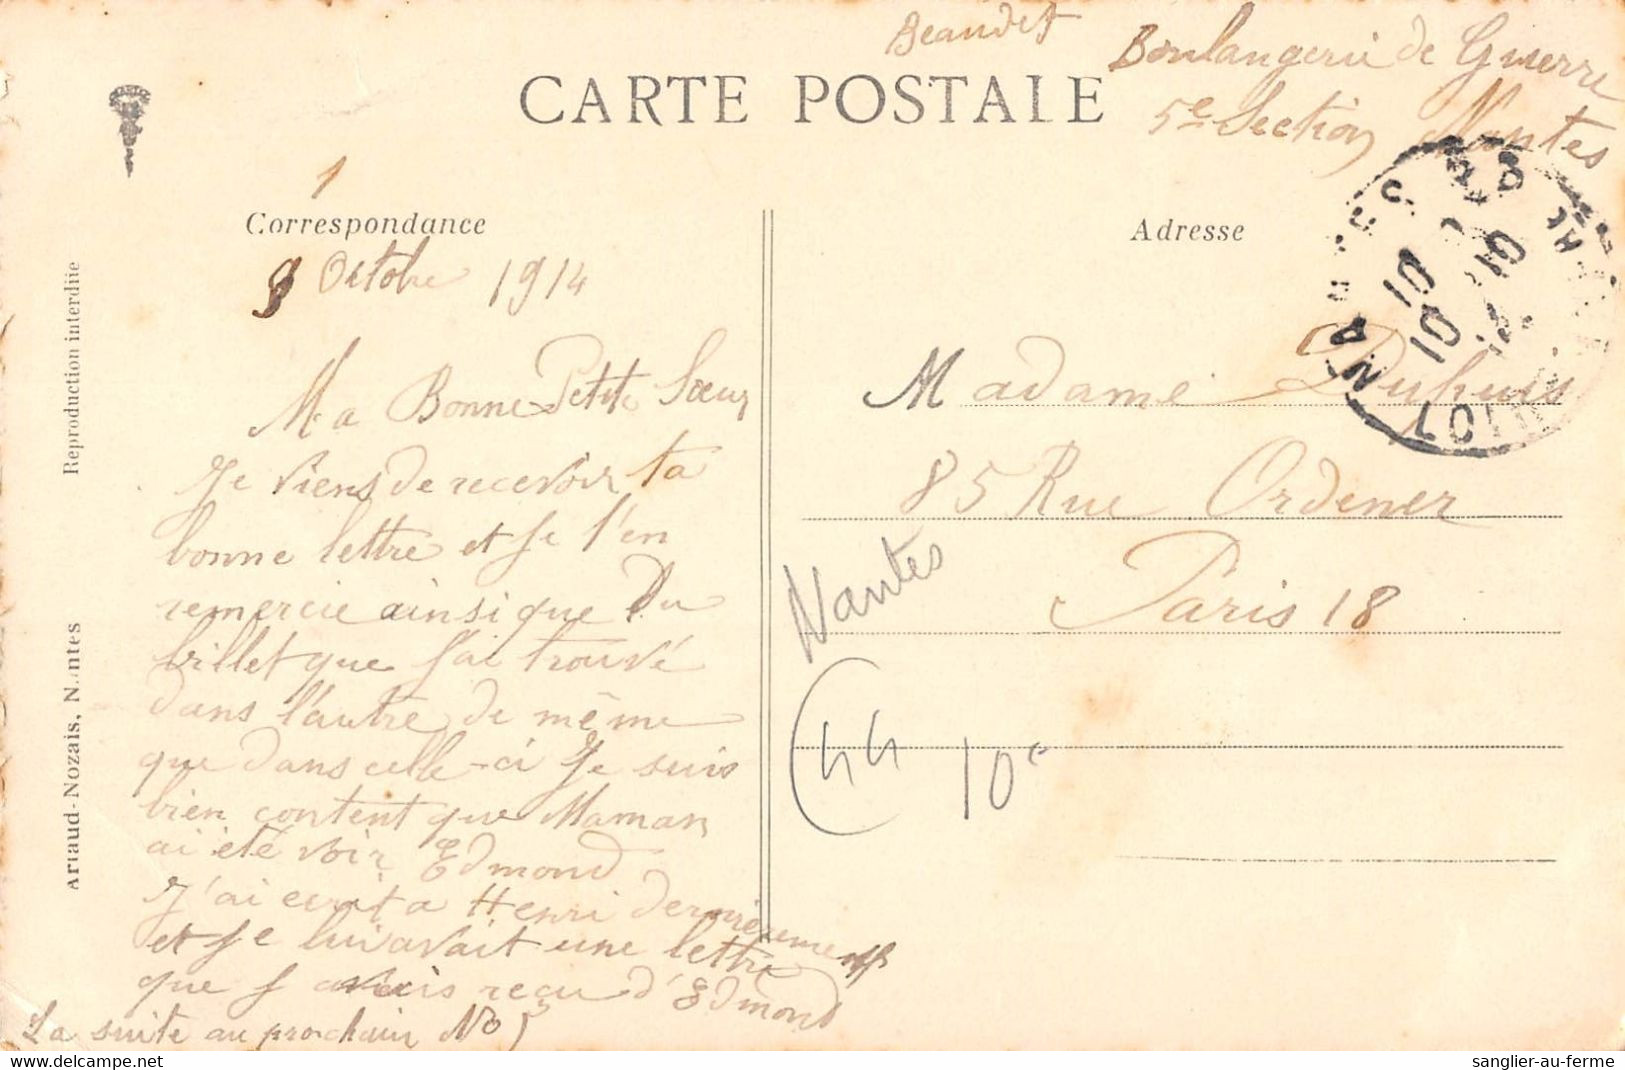 Beaudet
Boulangerie de Guerre
5e Section Nantes
CARTE POSTALE
1
Correspondance
Adresse
9 Octobre 1914
Ma Bonne Petite Sœur
Je viens de recevoir ta
bonne lettre et je t'en
remercie ainsi que Du
billet que j'ai trouvé
dans l'autre de même
que dans celle-ci Je suis
bien content que Maman
ai été voir Edmond
J'ai ecrit a Henri dernièrement
et je lui avait une lettre
que j avais reçu d'Edmond
La suite au prochain No
Madame Dupuis
85 Rue Ordener
Paris 18
NANTES
10 10
10 14
LOIRE
Nantes
(44
10e
Reproduction interdite
Artaud-Nozais, Nantes
sanglier-au-ferme